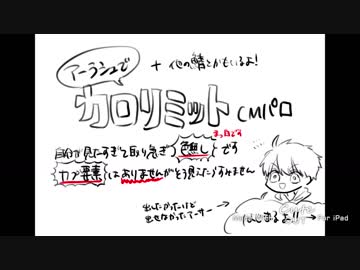 アーラシュで
+ 他の鯖とかもいるよ!
カロリミット CMパロ
まっ白です
自分が見たすぎて取り急ぎ色無しです
カプ要素はありませんがそう見えたらすみません
出したかったけど
出せなかったアーサー→
はじまるよ!!→
for iPad